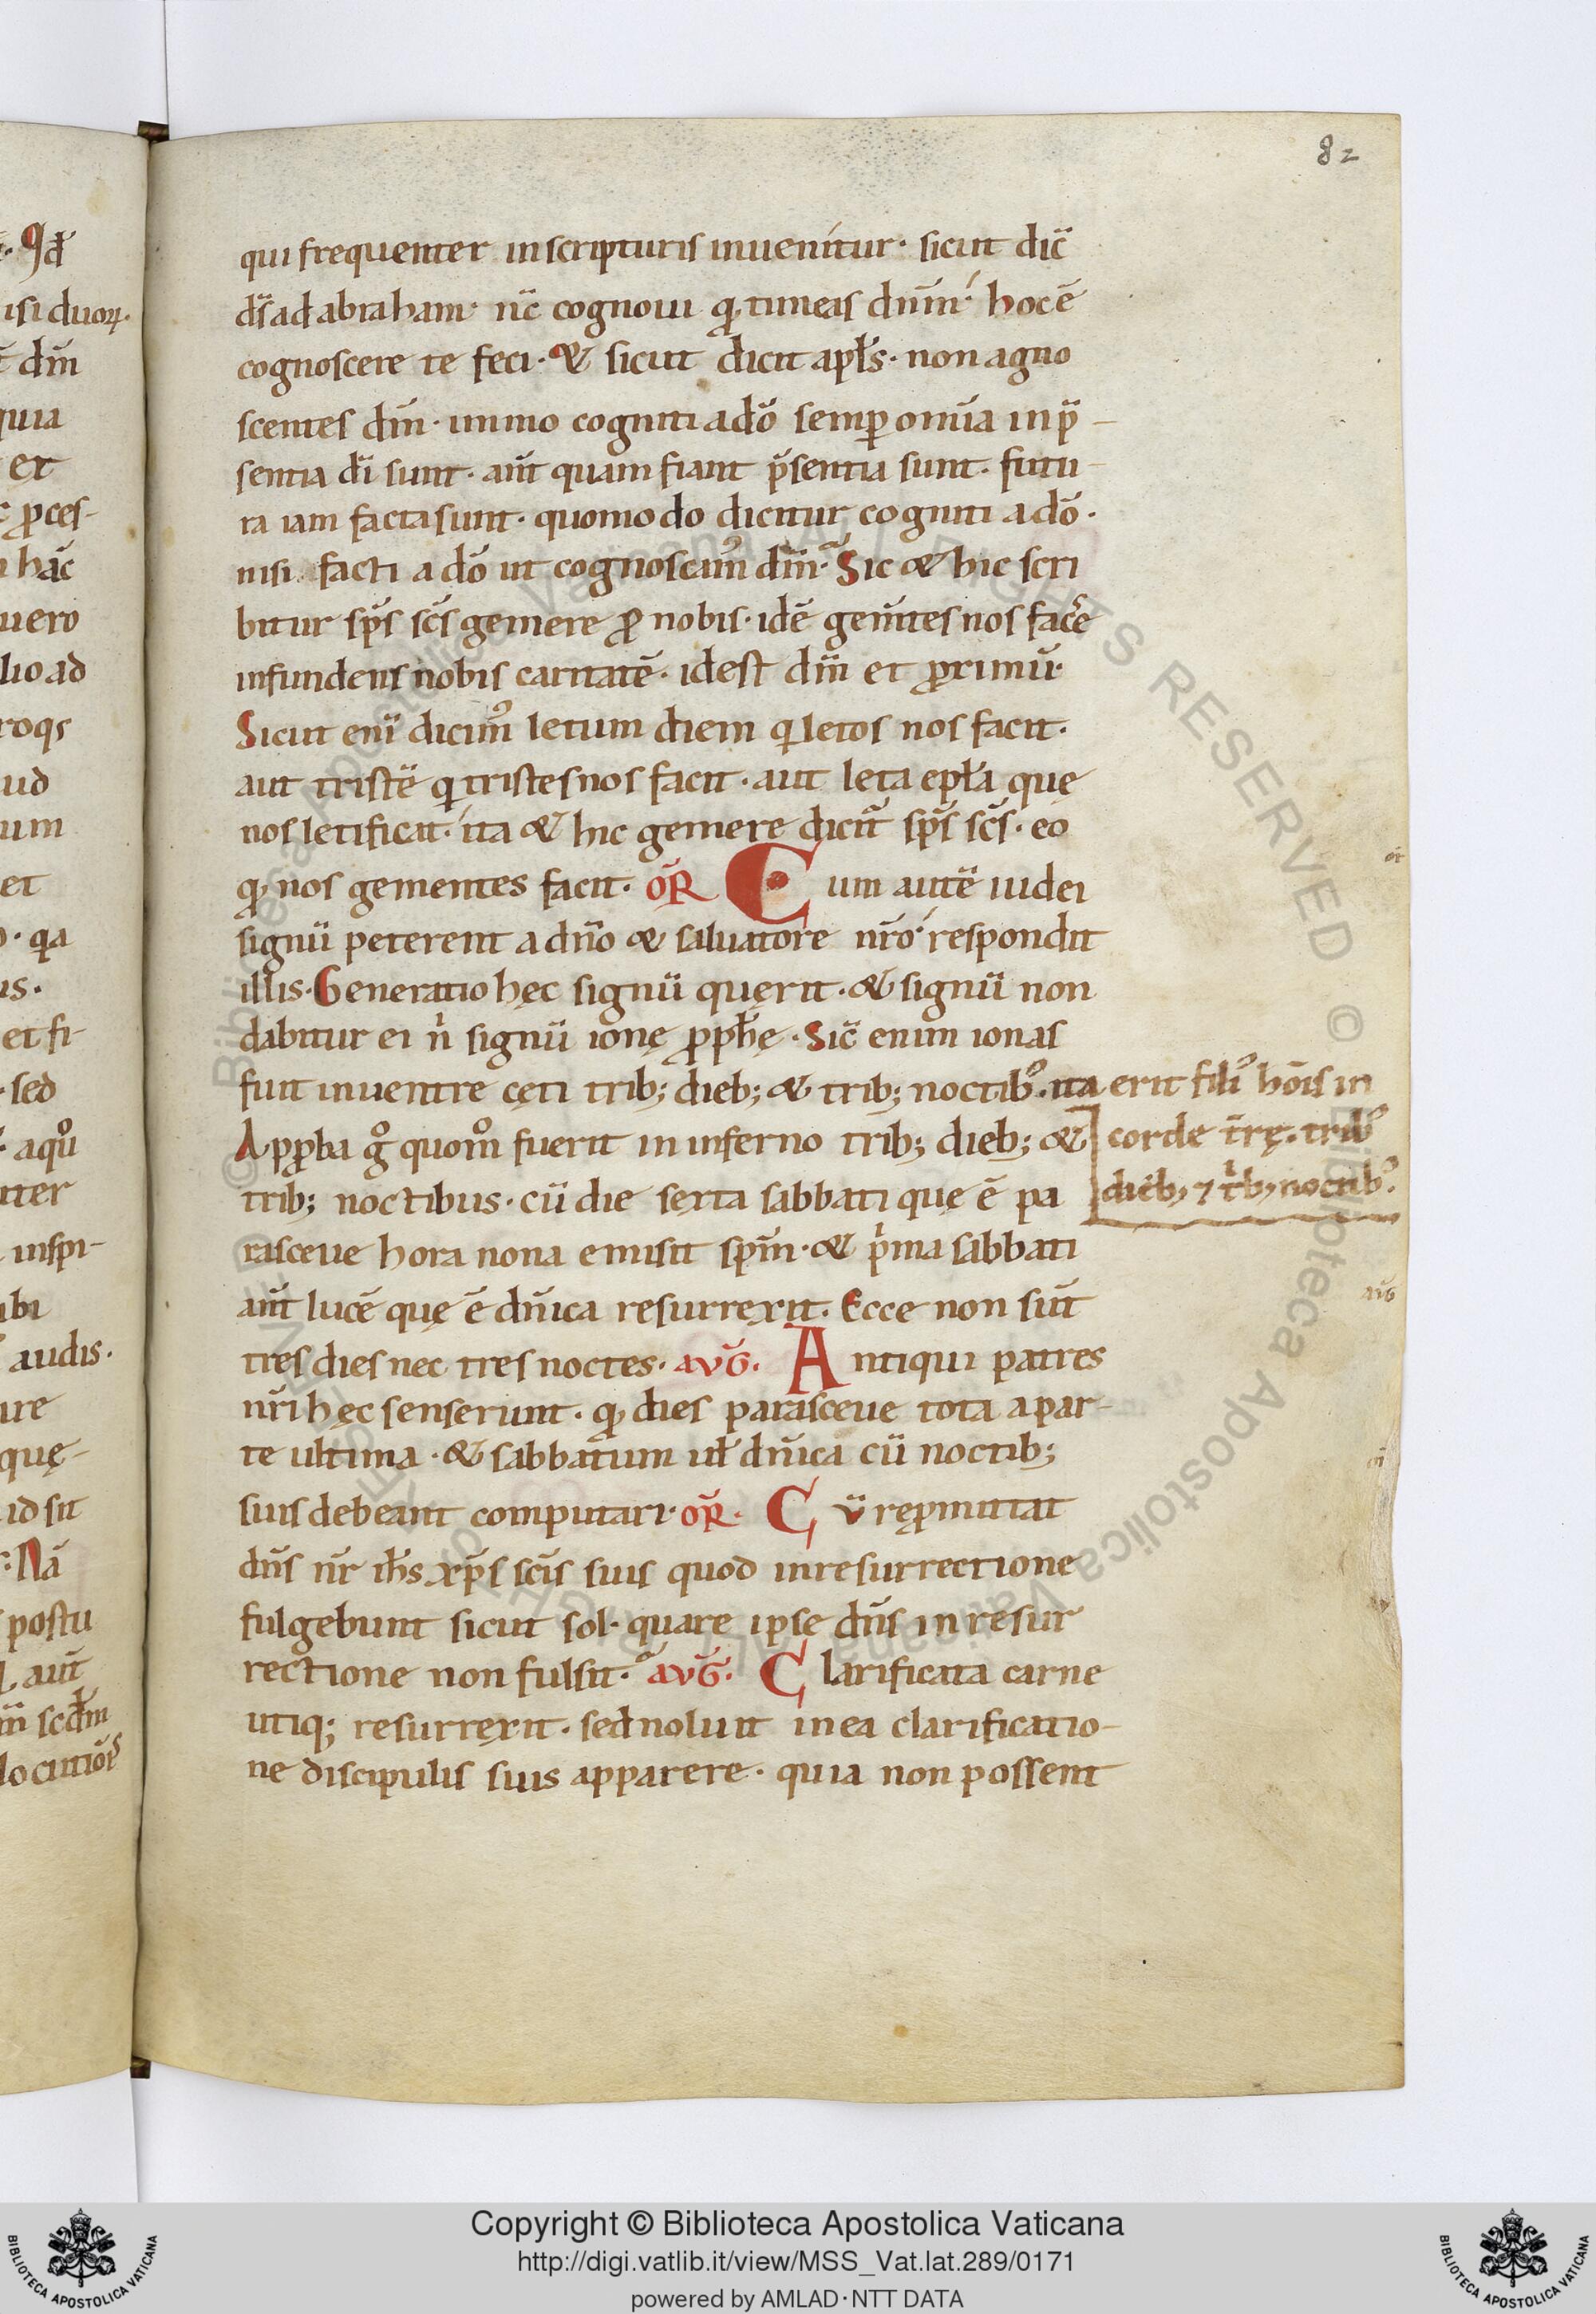 82
qui frequenter in scripturis inuenitur· sicut dic̄
d̄s ad abraham· nc̄ cognoui q̓ timeas dn̄m· hoc ē
cognoscere te feci· & sicut dicit apłs· non agno
scentes dm̄· immo cogniti a dō semꝑ omīa in p̄
sentia dī sunt· an̄t quam fiant p̄sentia sunt· futu-
ra iam facta sunt· quomodo dicitur cogniti a dō·
nisi facti a dō ut cognoscamꝰ dm̄· Sic & hic scri
bitur sp̄s sc̄s gemere ꝓ nobis· idē gem̄tes nos fac̄e
infundens nobis caritatē· idest dm̄ et ꝓximū·
Sicut enī dicimꝰ letum diem q̓ letos nos facit·
aut tristē q̓ tristes nos facit· aut leta epła quę
nos letificat· ita & hic gemere dicit̄ sp̄s sc̄s· eo
q̓ nos gementes facit· OR̄ Cum autē iudei
signū peterent a dn̄o & saluatore nr̄o· respondit
illis· Generatio hęc signū quęrit· & signū non
dabitur ei n̓ signū ionę ꝓph̄ę· Sic̄ enim ionas
fuit in uentre cęti trib; dieb; & trib; noctibꝰ· ita erit filiꝰ hōis in
Apꝓba gͦ quomͦ fuerit in inferno trib; dieb; & corde t̄rę· tribꝰ
trib; noctibus· cū die sexta sabbati quę ē pa dieb; ⁊ tⁱb; noctibꝰ·
rasceue hora nona emisit spm̄· & p̓ma sabbati
an̄t lucē quę ē dn̄ica resurrexit· Ecce non sūt
tres dies nec tres noctes· AVḠ· Antiqui patres
nr̄i hęc senserunt· q̓ dies parasceue tota a par-
te ultima· & sabbatum uł dn̄ica cū noctib;
suis debeant computari· OR̄· Cū reꝓmittat
dn̄s nr̄ ih̄s xp̄s sc̄is suis quod in resurrectione
fulgebunt sicut sol· quare ipse dn̄s in resur
rectione non fulsit· AVḠ· Clarificata carne
utiq; resurrexit· sed noluit in ea clarificatio-
ne discipulis suis apparere· quia non possent
Copyright © Biblioteca Apostolica Vaticana
http://digi.vatlib.it/view/MSS_Vat.lat.289/0171
powered by AMLAD·NTT DATA
BIBLIOTECA APOSTOLICA VATICANA
BIBLIOTECA APOSTOLICA VATICANA